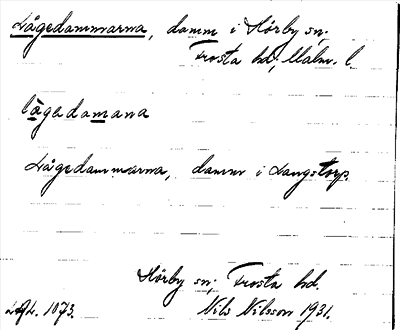 Lågedammarna, damm i Hörby sn;
Frosta hd, Malm. l.
lågedamana
Lågedammarna, dammar i Langstorp.
Hörby sn; Frosta hd.
1073. Nils Nilsson 1931.